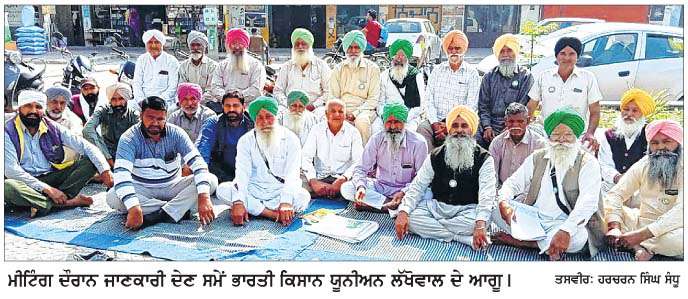 ਮੀਟਿੰਗ ਦੌਰਾਨ ਜਾਣਕਾਰੀ ਦੇਣ ਸਮੇਂ ਭਾਰਤੀ ਕਿਸਾਨ ਯੂਨੀਅਨ ਲੱਖੋਵਾਲ ਦੇ ਆਗੂ। ਤਸਵੀਰ: ਹਰਚਰਨ ਸਿੰਘ ਸੰਧੂ